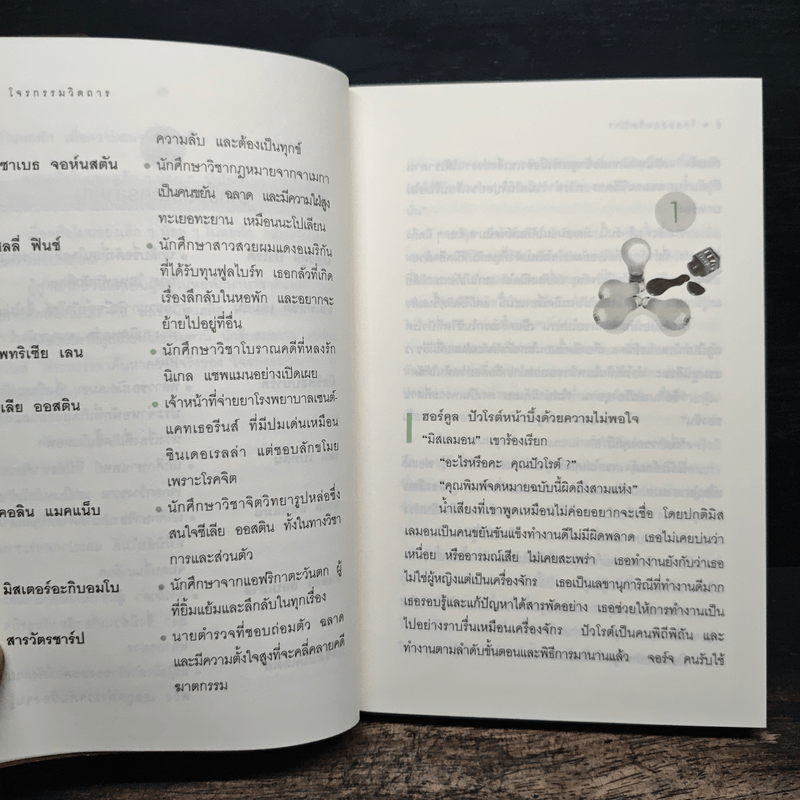 โจรกรรมวิตถาร
ความลับ และต้องเป็นทุกข์
ซาเบธ จอห์นสตัน • นักศึกษาวิชากฎหมายจากจาเมกา
เป็นคนขยัน ฉลาด และมีความใฝ่สูง
ทะเยอทะยาน เหมือนนะโปเลียน
ลลี่ ฟินช์ • นักศึกษาสาวสวยผมแดงอเมริกัน
ที่ได้รับทุนฟูลไบร์ท เธอกลัวที่เกิด
เรื่องลึกลับในหอพัก และอยากจะ
ย้ายไปอยู่ที่อื่น
แพทริเซีย เลน • นักศึกษาวิชาโบราณคดีที่หลงรัก
นิเกล แชพแมนอย่างเปิดเผย
เลีย ออสติน • เจ้าหน้าที่จ่ายยาโรงพยาบาลเซนต์-
แคทเธอรีนส์ ที่มีปมเด่นเหมือน
ซินเดอเรลล่า แต่ชอบลักขโมย
เพราะโรคจิต
คอลิน แมคแน็บ • นักศึกษาวิชาจิตวิทยารูปหล่อซึ่ง
สนใจซีเลีย ออสติน ทั้งในทางวิชา
การและส่วนตัว
มิสเตอร์อะกิบอมโบ • นักศึกษาจากแอฟริกาตะวันตก ผู้
ที่ยิ้มแย้มและลึกลับในทุกเรื่อง
สารวัตรชาร์ป • นายตำรวจที่ชอบถ่อมตัว ฉลาด
และมีความตั้งใจสูงที่จะคลี่คลายคดี
ฆาตกรรม
1
ฮอร์คูล ปัวโรต์หน้าบึ้งด้วยความไม่พอใจ
“มิสเลมอน” เขาร้องเรียก
“อะไรหรือคะ คุณปัวโรต์ ?”
“คุณพิมพ์จดหมายฉบับนี้ผิดถึงสามแห่ง”
น้ำเสียงที่เขาพูดเหมือนไม่ค่อยอยากจะเชื่อ โดยปกติมิส
เลมอนเป็นคนขยันขันแข็งทำงานดีไม่มีผิดพลาด เธอไม่เคยบ่นว่า
เหนื่อย หรืออารมณ์เสีย ไม่เคยสะเพร่า เธอทำงานยังกับว่าเธอ
ไม่ใช่ผู้หญิงแต่เป็นเครื่องจักร เธอเป็นเลขานุการิณีที่ทำงานดีมาก
เธอรอบรู้และแก้ปัญหาได้สารพัดอย่าง เธอช่วยให้การทำงานเป็น
ไปอย่างราบรื่นเหมือนเครื่องจักร ปัวโรต์เป็นคนพิถีพิถัน และ
ทำงานตามลำดับขั้นตอนและพิธีการมานานแล้ว จอร์จ คนรับใช้